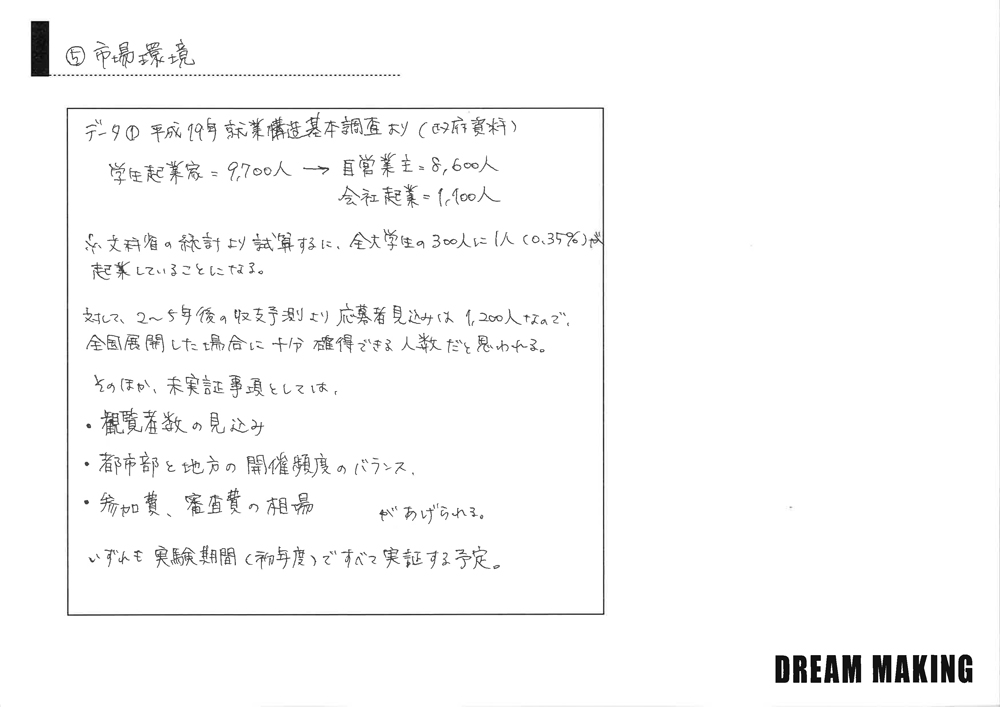 ⑤ 市場環境
データ① 平成19年就業構造基本調査より(政府資料)
学生起業家=9,700人 → 自営業主=8,600人
会社起業=1,100人
※文科省の統計より試算するに、全大学生の300人に1人(0.35%)が
起業していることになる。
対して、2〜5年後の収支予測より応募者見込みは1,200人なので、
全国展開した場合に十分確得できる人数だと思われる。
そのほか、未実証事項としては、
・観覧者数の見込み
・都市部と地方の開催頻度のバランス、
・参加費、審査費の相場 があげられる。
いずれも実験期間(初年度)ですべて実証する予定。
DREAM MAKING